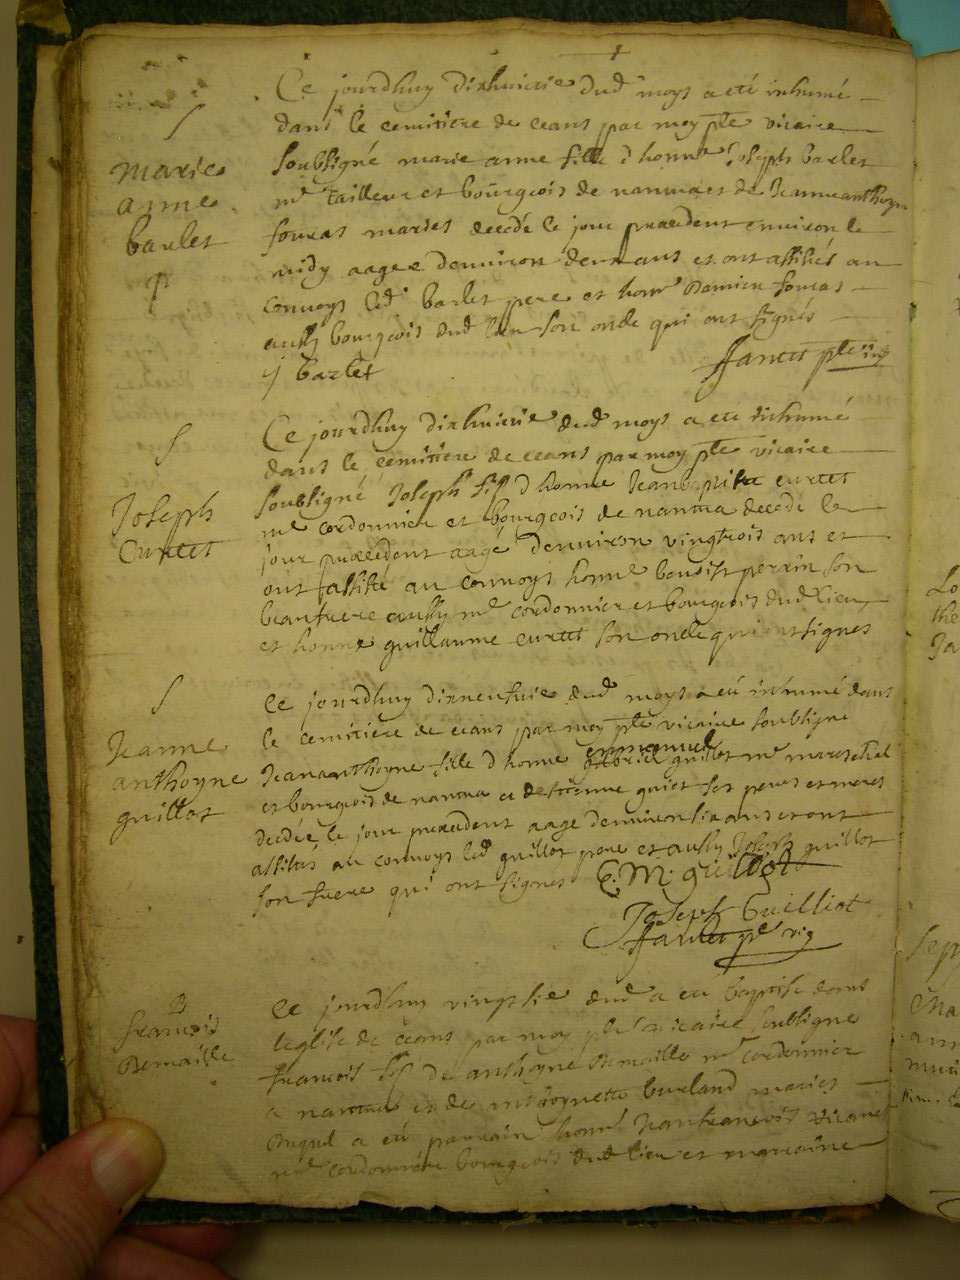 Ce jourdhuy dixhuictie dud moys a eté inhumé
dans le cemitiere de ceans par moy pbre vicaire
S
Marie
anne
barlet
soubsigné marie anne fille d honne Joseph barlet
me tailleur et bourgeois de nantua et de Jeanneanthoyne
fouras mariés decedé le jour precedent environ le
midy aagee denviron deux ans et ont assistés au
convoys led barlet pere et honr Damien fouras
aussy bourgeois dud lieu son oncle qui ont signés
J barlet
Jantet pbre vic
S
Joseph
Curtet
Ce jourdhuy dixhuictie dud moys a eté inhumé
dans le cemitiere de ceans par moy pbre vicaire
soubsigné Joseph fils d honne Jeanbaptiste curtet
me cordonnier et bourgeois de nantua decedé le
jour precedent aagé denviron vingtrois ans et
ont assisté au convoys honne benoist perrin son
beaufrere aussy me cordonnier et bourgeois dud lieu
et honne guillaume curtet son oncle qui ont signes
S
Jeanne
anthoyne
guillot
Ce jourdhuy dixneufuie dud moys a eté inhumé dans
le cemitiere de ceans par moy pbre vicaire soubsigne
Jeananthoyne fille d honne emmanuel guillot me mareschal
et bourgeois de nantua et de guiet ses peres et meres
decedée le jour precedent aage denviron six ans et ont
assistés au convoys led guillot pere et aussy Joseph guillot
son frere qui ont signes E. M. guilliot
Joseph Guilliot
Jantet pbre vic
B
francois
Bemaille
Ce jourdhuy vingt sie dud a eté baptisé dans
leglise de ceans par moy pbre vicaire soubsigne
francois fils de anthoyne Bemaille me cordonnier
a nantua et de burland mariés
duquel a eté parrain honne Jeanfrancois
me cordonnier bourgeois dud lieu et maraine